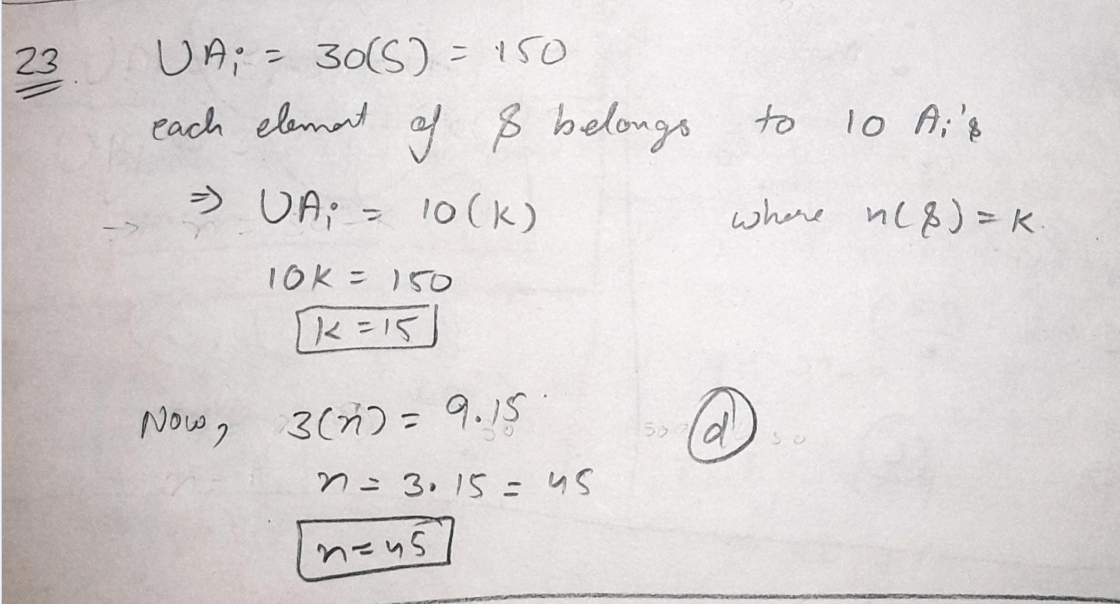 23. UAi = 30(5) = 150
each element of S belongs to 10 Ai's
⇒ UAi = 10(k) where n(S) = k.
10k = 150
k = 15
Now, 3(n) = 9.15 (d)
n = 3.15 = 45
n = 45